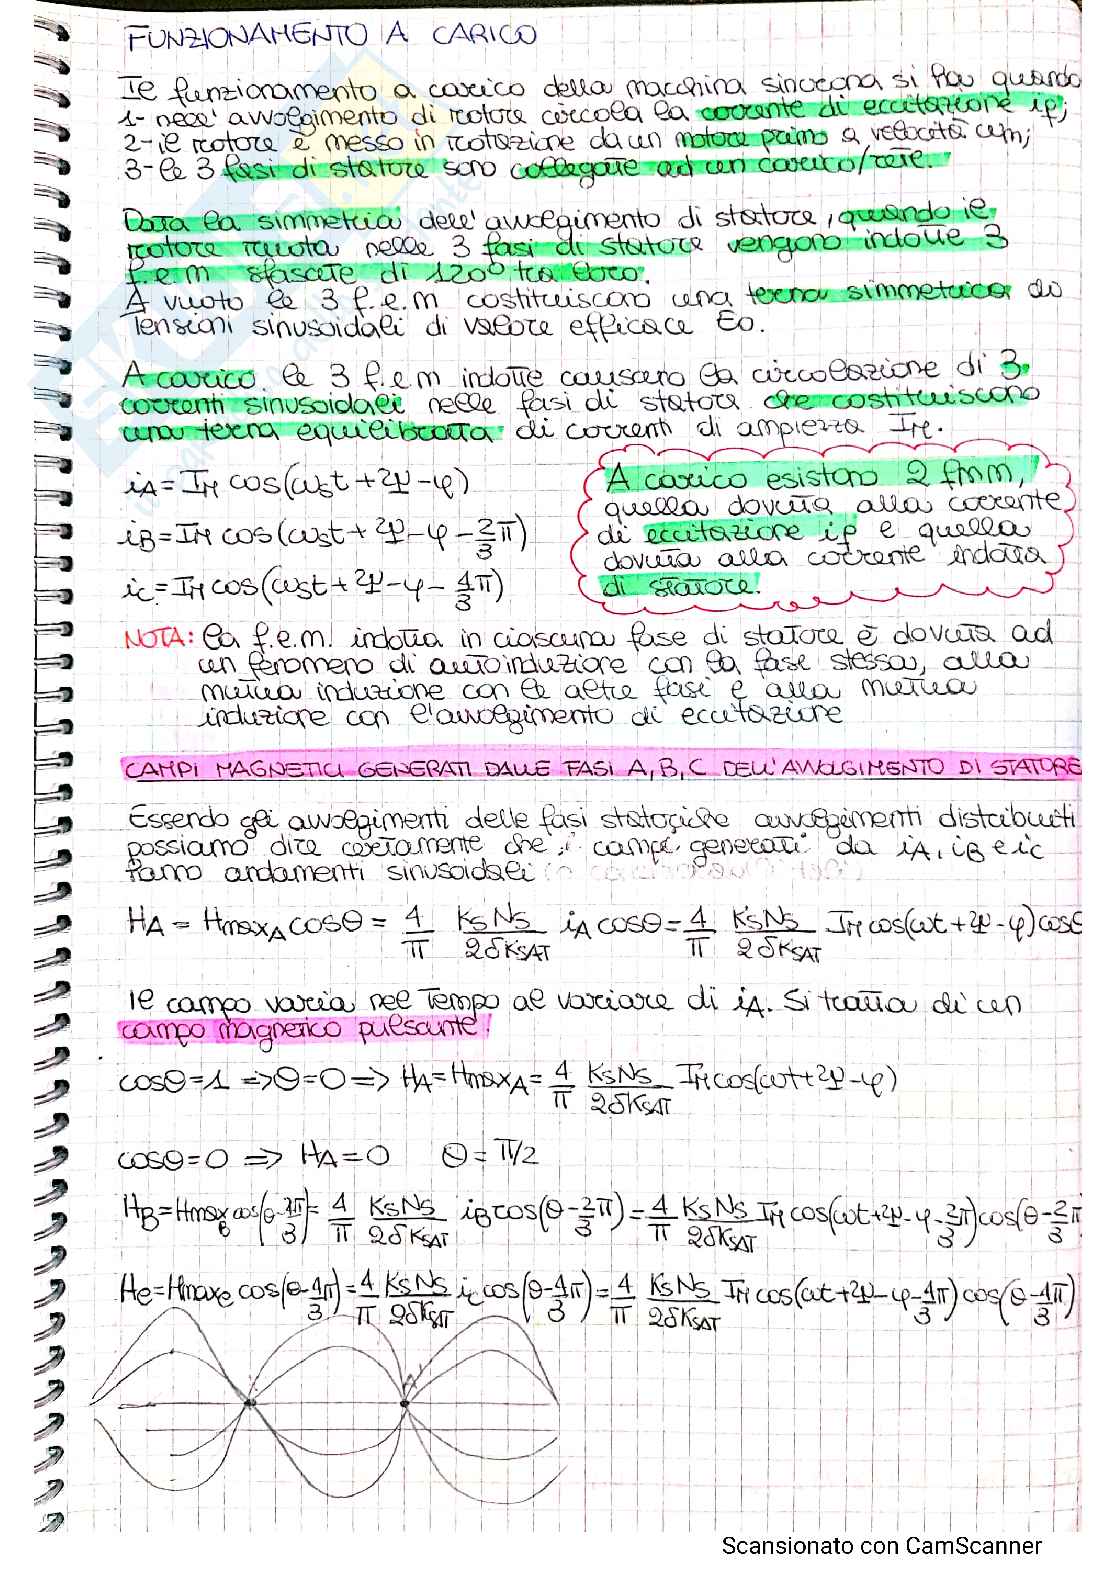 FUNZIONAMENTO A CARICO
Il funzionamento a carico della macchina sincrona si ha quando
1- nell' avvolgimento di rotore circola la corrente di eccitazione if;
2- il rotore è messo in rotazione da un motore primo a velocità ωm;
3- le 3 fasi di statore sono collegate ad un carico/rete.
Data la simmetria dell' avvolgimento di statore, quando il
rotore ruota nelle 3 fasi di statore vengono indotte 3
f.e.m sfasate di 120° tra loro.
A vuoto le 3 f.e.m costituiscono una terna simmetrica di
tensioni sinusoidali di valore efficace E0.
A carico le 3 f.e.m indotte causano la circolazione di 3
correnti sinusoidali nelle fasi di statore che costituiscono
una terna equilibrata di correnti di ampiezza IM.
iA = IM cos(ωst + 2ψ - φ)
iB = IM cos(ωst + 2ψ - φ - 2/3 π)
iC = IM cos(ωst + 2ψ - φ - 4/3 π)
A carico esistono 2 fmm,
quella dovuta alla corrente
di eccitazione if e quella
dovuta alla corrente indotta
di statore.
NOTA: la f.e.m. indotta in ciascuna fase di statore è dovuta ad
un fenomeno di autoinduzione con la fase stessa, alla
mutua induzione con le altre fasi e alla mutua
induzione con l'avvolgimento di eccitazione
CAMPI MAGNETICI GENERATI DALLE FASI A, B, C DELL'AVVOLGIMENTO DI STATORE
Essendo gli avvolgimenti delle fasi statoriche avvolgimenti distribuiti
possiamo dire certamente che i campi generati da iA, iB e iC
hanno andamenti sinusoidali
HA = HmaxA cosθ = 4/π KsNs/2δKSAT iA cosθ = 4/π KsNs/2δKSAT IM cos(ωt + 2ψ - φ) cosθ
Il campo varia nel tempo al variare di iA. Si tratta di un
campo magnetico pulsante.
cosθ = 1 => θ = 0 => HA = HmaxA = 4/π KsNs/2δKSAT IM cos(ωt + 2ψ - φ)
cosθ = 0 => HA = 0 θ = π/2
HB = HmaxB cos(θ - 2π/3) = 4/π KsNs/2δKSAT iB cos(θ - 2/3 π) = 4/π KsNs/2δKSAT IM cos(ωt + 2ψ - φ - 2/3 π) cos(θ - 2/3 π
HC = HmaxC cos(θ - 4π/3) = 4/π KsNs/2δKSAT iC cos(θ - 4π/3) = 4/π KsNs/2δKSAT IM cos(ωt + 2ψ - φ - 4π/3) cos(θ - 4π/3)
A'
Scansionato con CamScanner